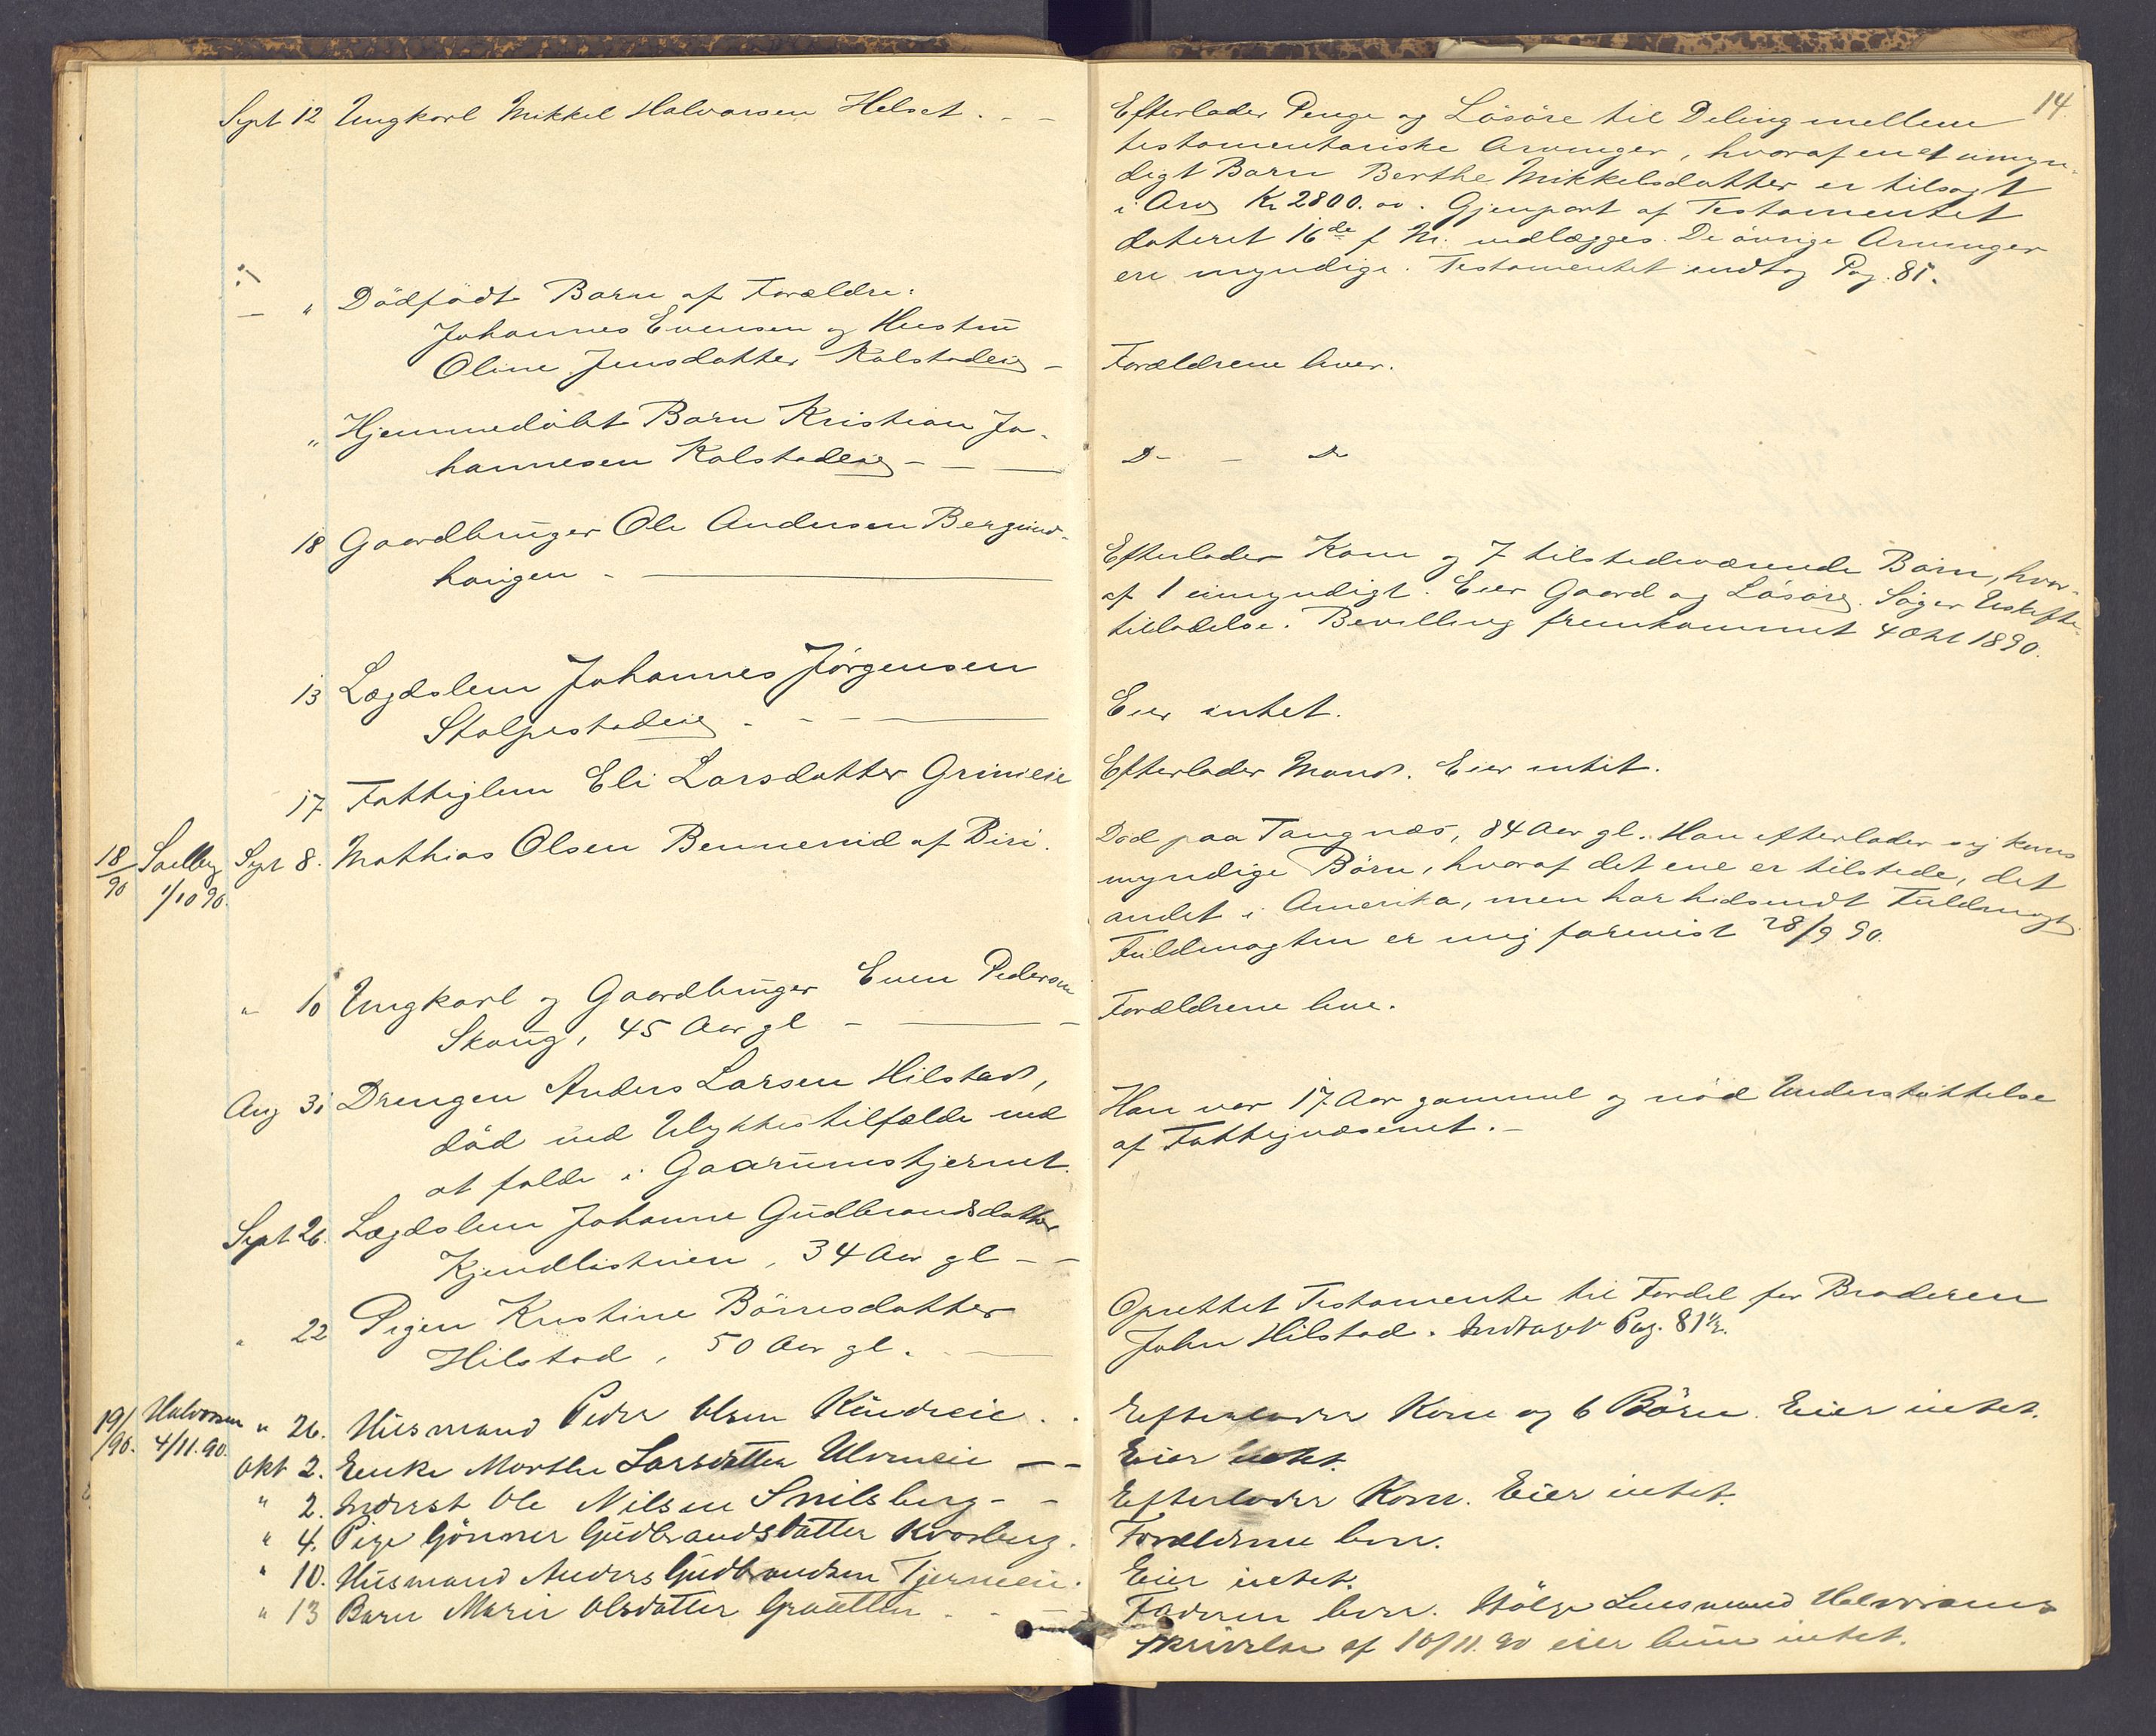 14.
Sept 12 Ungkarl Mikkel Halvorsen Helset. - -
Efterlader Penge og Lösöre til Deling mellem
testamentariske Arvinger, hvoraf en et umyn-
digt Barn Berthe Mikkelsdatter er tilsagt
i Arv Kr 2800.00. Gjenpart af Testamentet
dateret 16de f. M. vedlægges. De övrige Arvinger
ere myndige. Testamentet indtag Pag. 81.
— " Dödfödt Barn af Forældre:
Johannes Evensen og Hustru
Oline Jensdatter Kolstadeie -
Forældrene lever.
" Hjemmedöbt Barn Kristian Jo-
hannesen Kolstadeie - - —
D - - Do
18 Gaardbruger Ole Andersen Bergund-
haugen - —
Efterlader Kone og 7 tilstedeværende Börn, hvor-
af 1 umyndigt. Eier Gaard og Lösöre. Söger Uskifte-
tilladelse. Bevilling fremkommet 4 Okt 1890.
13 Lægdslem Johannes Jörgensen
Stalpestadeie - - - —
Eier intet.
17 Fattiglem Eli Larsdatter Grimeie
Efterlader Mand. Eier intet.
18/90 Sælby 1/10 90. Sept 8. Mathias Olsen Bennenid af Biri.
Död paa Tangnæs, 84 Aar gl. Han efterlader sig kuns
myndige Börn, hvoraf det ene er tilstede, det
andet i Amerika, men har hidsendt Fuldmagt
Fuldmagten er mig forevist 28/9 90.
" 10 Ungkarl og Gaardbruger Even Pedersen
Skaug, 45 Aar gl - — -
Forældrene leve.
Aug 31 Drengen Anders Larsen Hilstad,
död ved Ulykkestilfælde ved
at falde i Gaarumstjernet.
Han var 17 Aar gammel og nöd Understöttelse
af Fattigvæsenet. -
Sept 26. Lægdslem Johanne Gudbrandsdatter
Kjendlistuen, 34 Aar gl - -
" 22 Pigen Kristine Börresdatter
Hilstad, 50 Aar gl. —
Oprettet Testamente til Fordel for Broderen
John Hilstad. Indtaget Pag. 81 1/2.
19/90. Halvorsen 4/11.90. " 26. Husmand Peder Olsen Rundreie . .
Efterlader Kone og 6 Börn. Eier intet.
Okt 2. Enke Marthe Larsdatter Ulvneie — -
Eier intet.
" 2. Inderst Ole Nilsen Smilsberg - -
Efterlader Kone. Eier intet.
" 4. Pige Gönner Gudbrandsdatter Kvarberg.
Forældrene leve.
" 10. Husmand Anders Gudbrandsen Tjerneeie.
Eier intet.
" 13 Barn Marie Olsdatter
Faderen lever. Ifölge Lensmand Halvorsens
skrivelse af 10/11.90 eier hun intet.